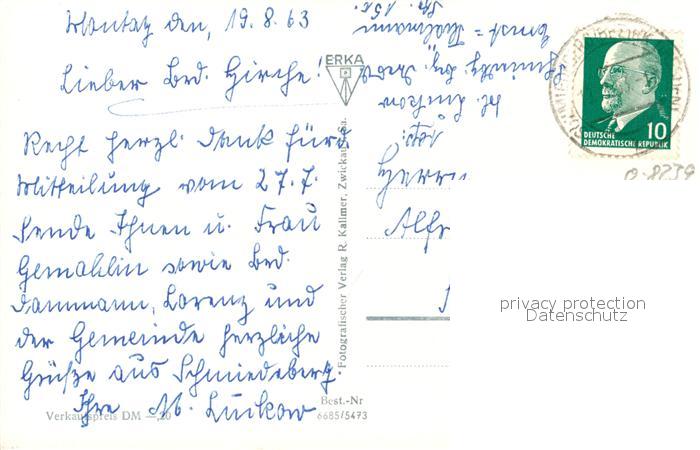 Montag den, 19.8.63
Lieber Brd. Hirche!
Recht herzl. Dank für
Mitteilung vom 27.7.
Sende Ihnen u. Frau
Gemahlin sowie Brd.
Dammann, Lorenz und
der Gemeinde herzliche
Grüße aus Schmiedeberg.
Ihre M. Luckow
Verkaufspreis DM —,20
ERKA
Fotografischer Verlag R. Kallmer, Zwickau/Sa.
Best.-Nr
6685/5473
Ernst =
Str. 15
Herrn
Alfr
DEUTSCHE
DEMOKRATISCHE REPUBLIK
10
privacy protection
Datenschutz